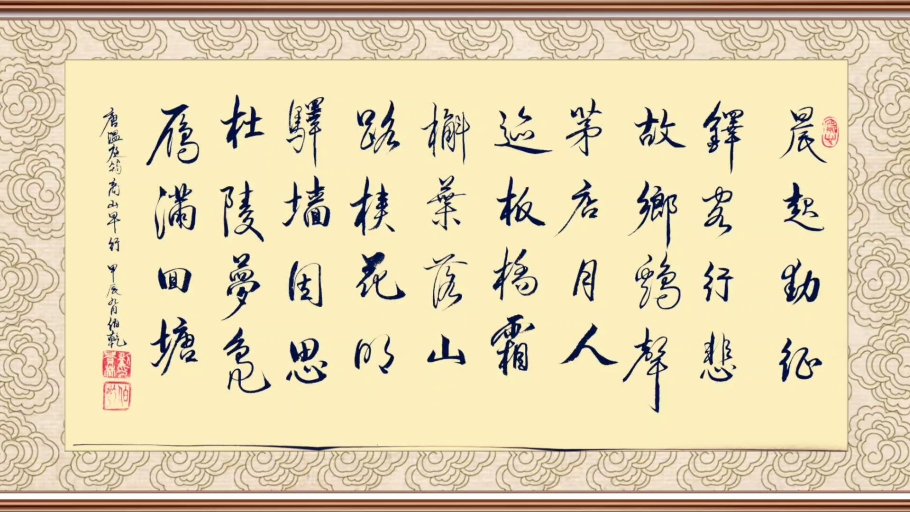 晨起動征
鐸客行悲
故鄉鷄聲
茅店月人
迹板橋霜
槲葉落山
路枳花明
驛墙因思
杜陵夢鳧
雁滿回塘
唐温庭筠商山早行 甲辰 伯乾